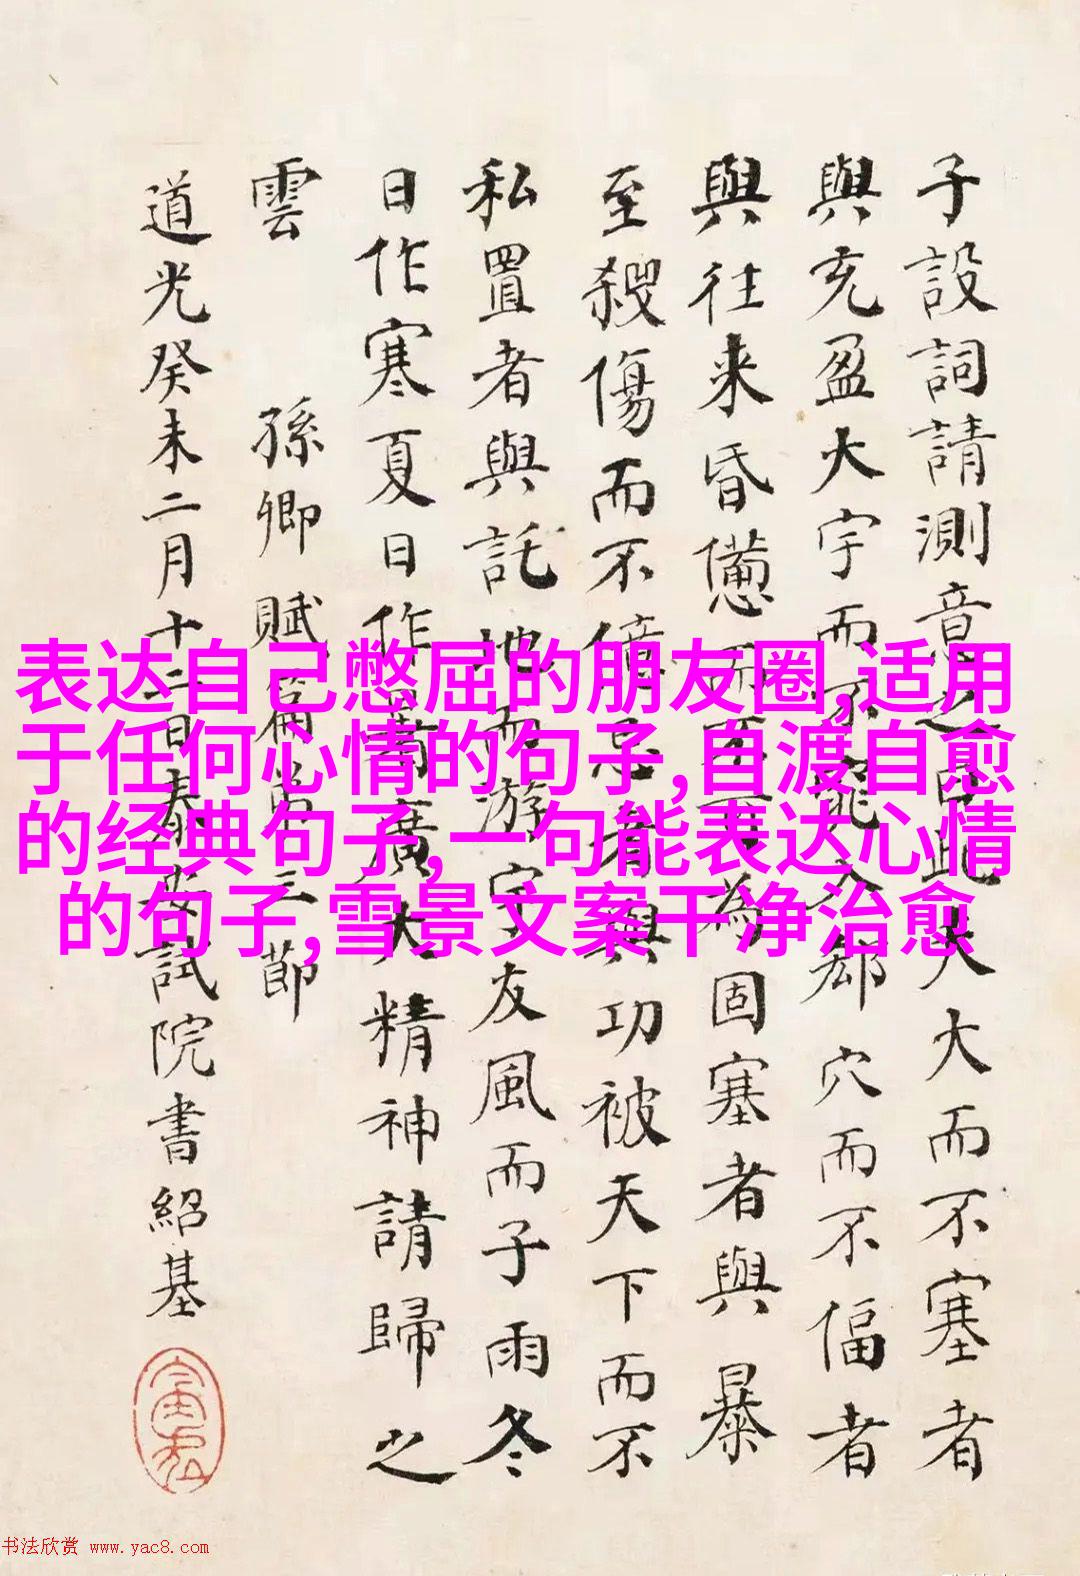 子設詞請測意之曰此夫大而不塞者
與充盈大宇而不窕入郄穴而不偪者
與往来昏憊而不可為固塞者與暴
至殺傷而不億忌者與功被天下而不
私置者與託地而游宇友風而子雨冬
日作寒夏日作暑廣大精神請歸之
雲 孫卿賦篇第三節
道光癸未二月十二日泰安試院書紹基
表达自己憋屈的朋友圈,适用
于任何心情的句子,自渡自愈
的经典句子,一句能表达心情
的句子,雪景文案干净治愈
书法欣赏 www.yac8.com